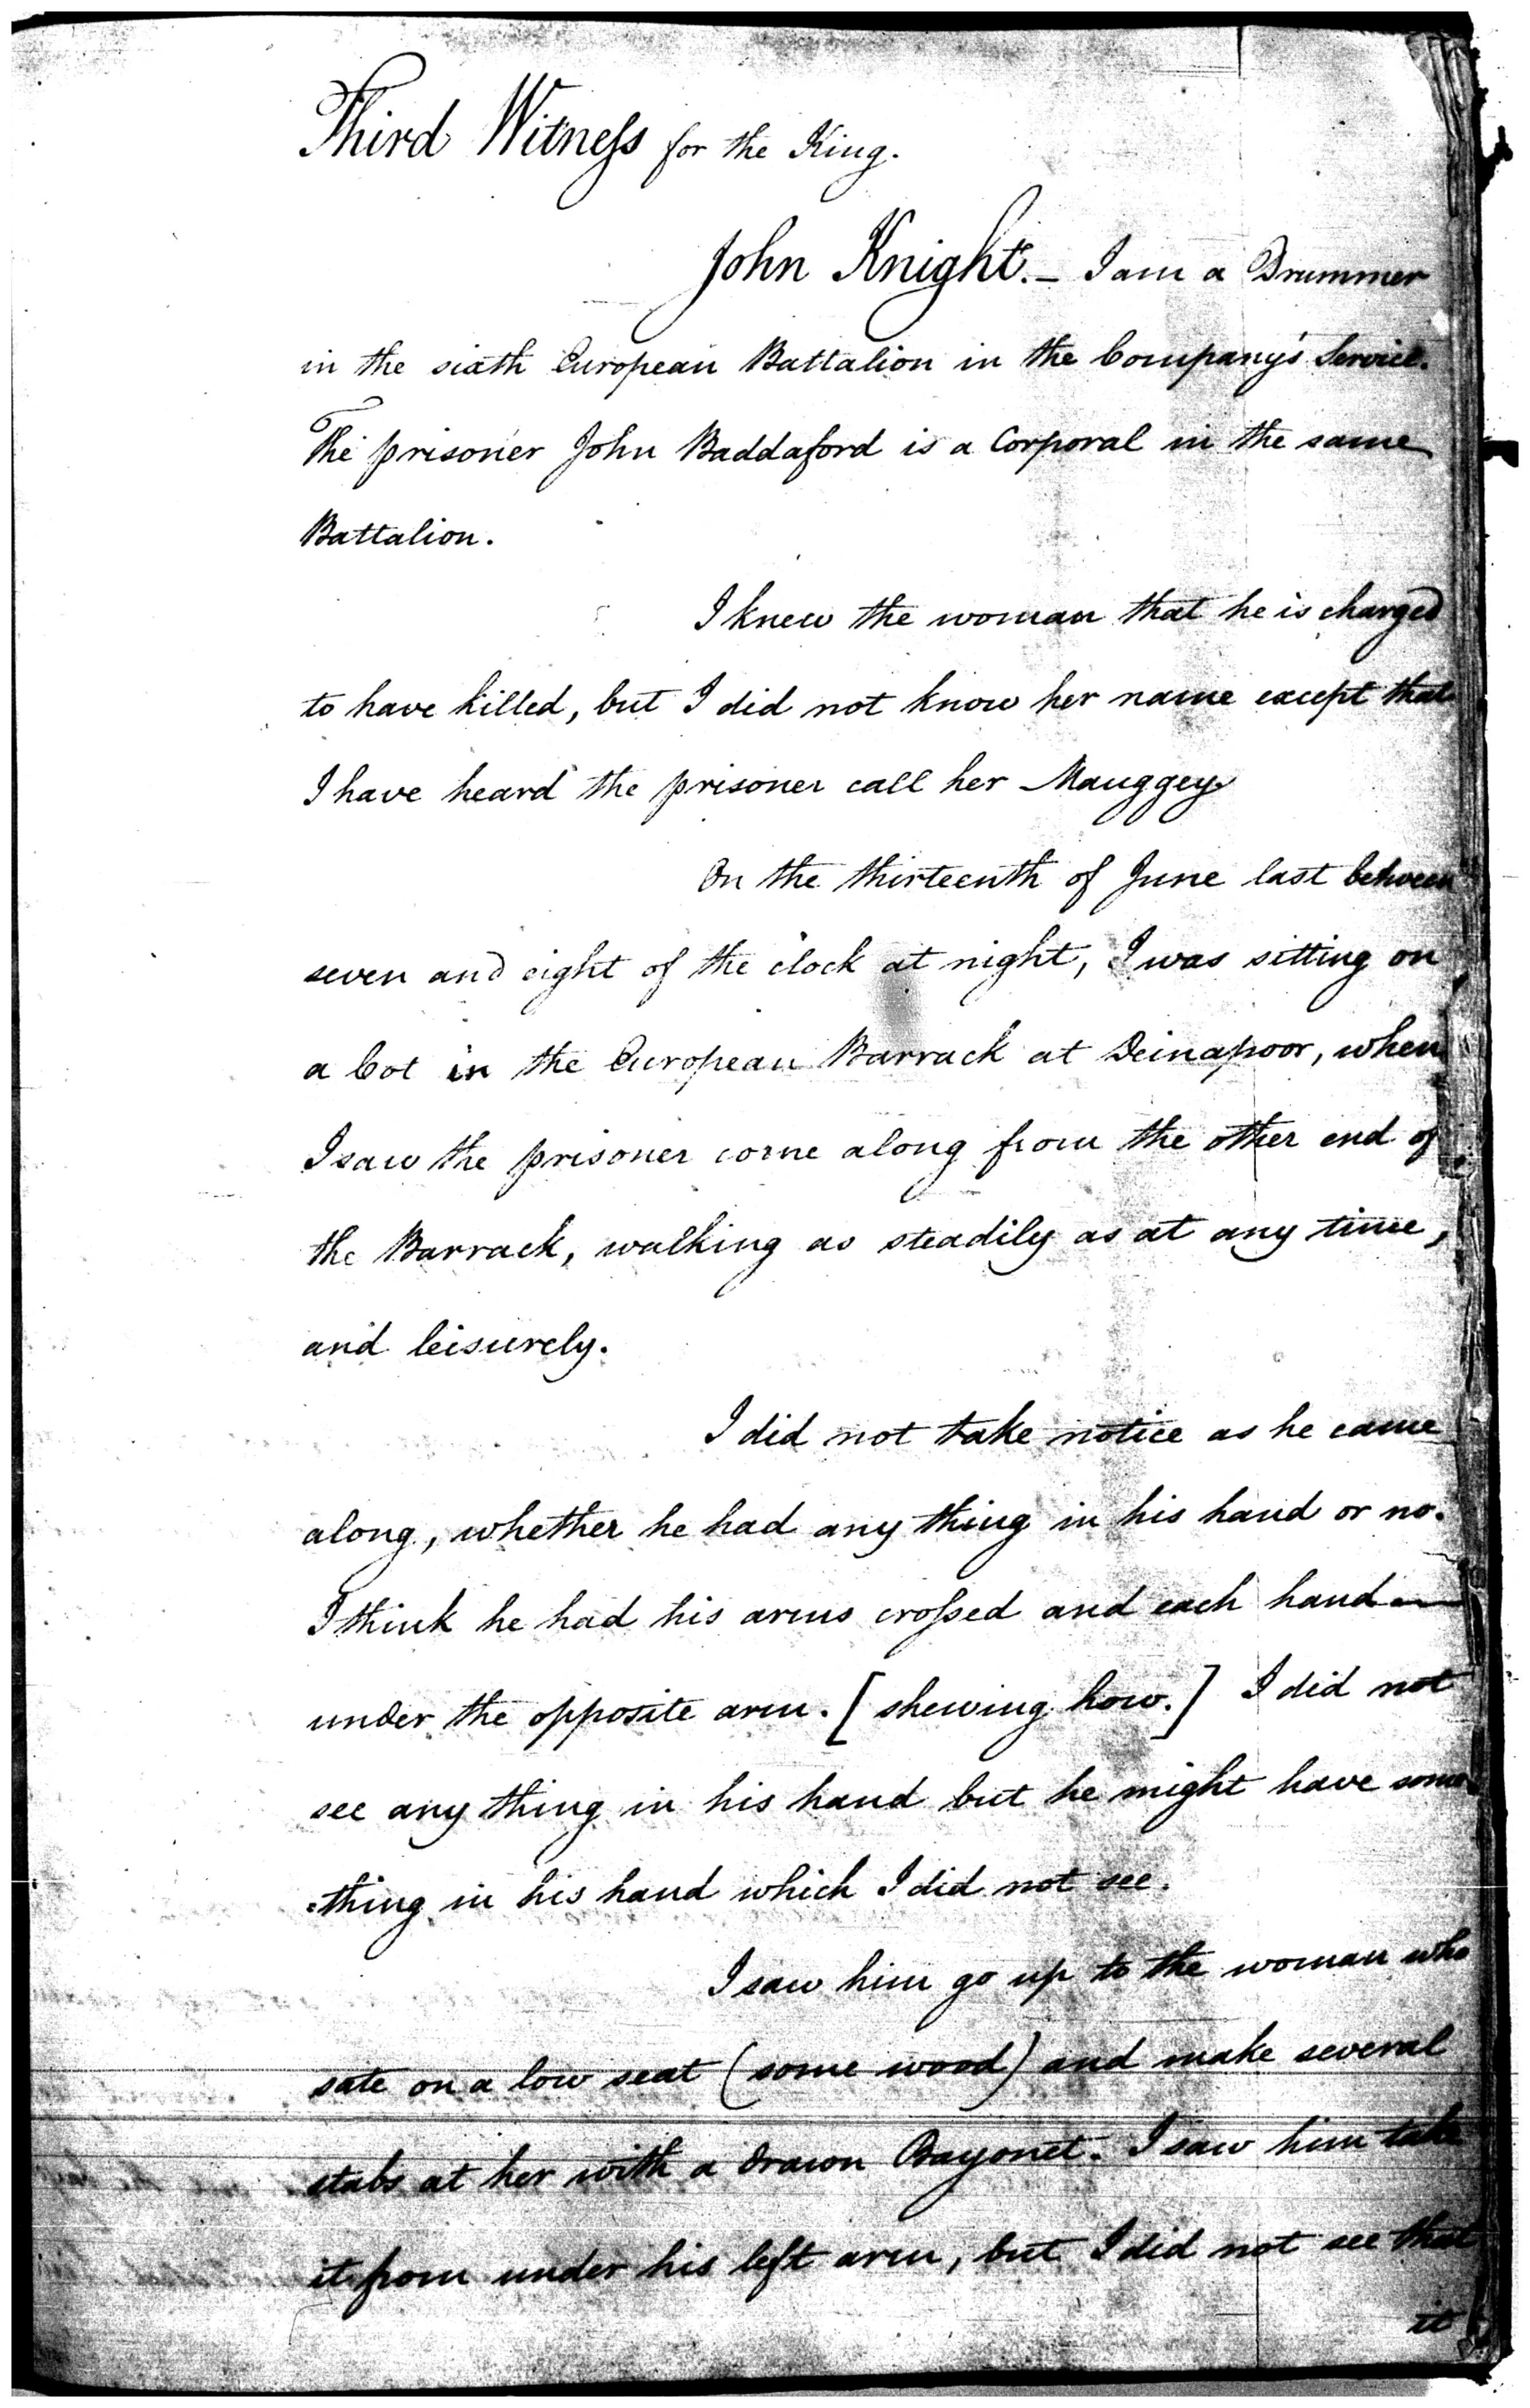 Third Witneſs for the King.
John Knight. – I am a Drummer
in the sixth European Battalion in the Company's Service.
The prisoner John Baddaford is a Corporal in the same
Battalion.
I knew the woman that he is charged
to have killed, but I did not know her name except that
I have heard the prisoner call her Mauggey.
On the thirteenth of June last between
seven and eight of the clock at night, I was sitting on
a Cot in the European Barrack at Deinapoor, when
I saw the prisoner come along from the other end of
the Barrack, walking as steadily as at any time,
and leisurely.
I did not take notice as he came
along, whether he had any thing in his hand or no.
I think he had his arms croſsed and each hand
under the opposite arm. [shewing how.] I did not
see any thing in his hand but he might have some
thing in his hand which I did not see.
I saw him go up to the woman who
sate on a low seat (some wood) and make several
stabs at her with a drawn Bayonet. I saw him take
it from under his left arm, but I did not see that
it